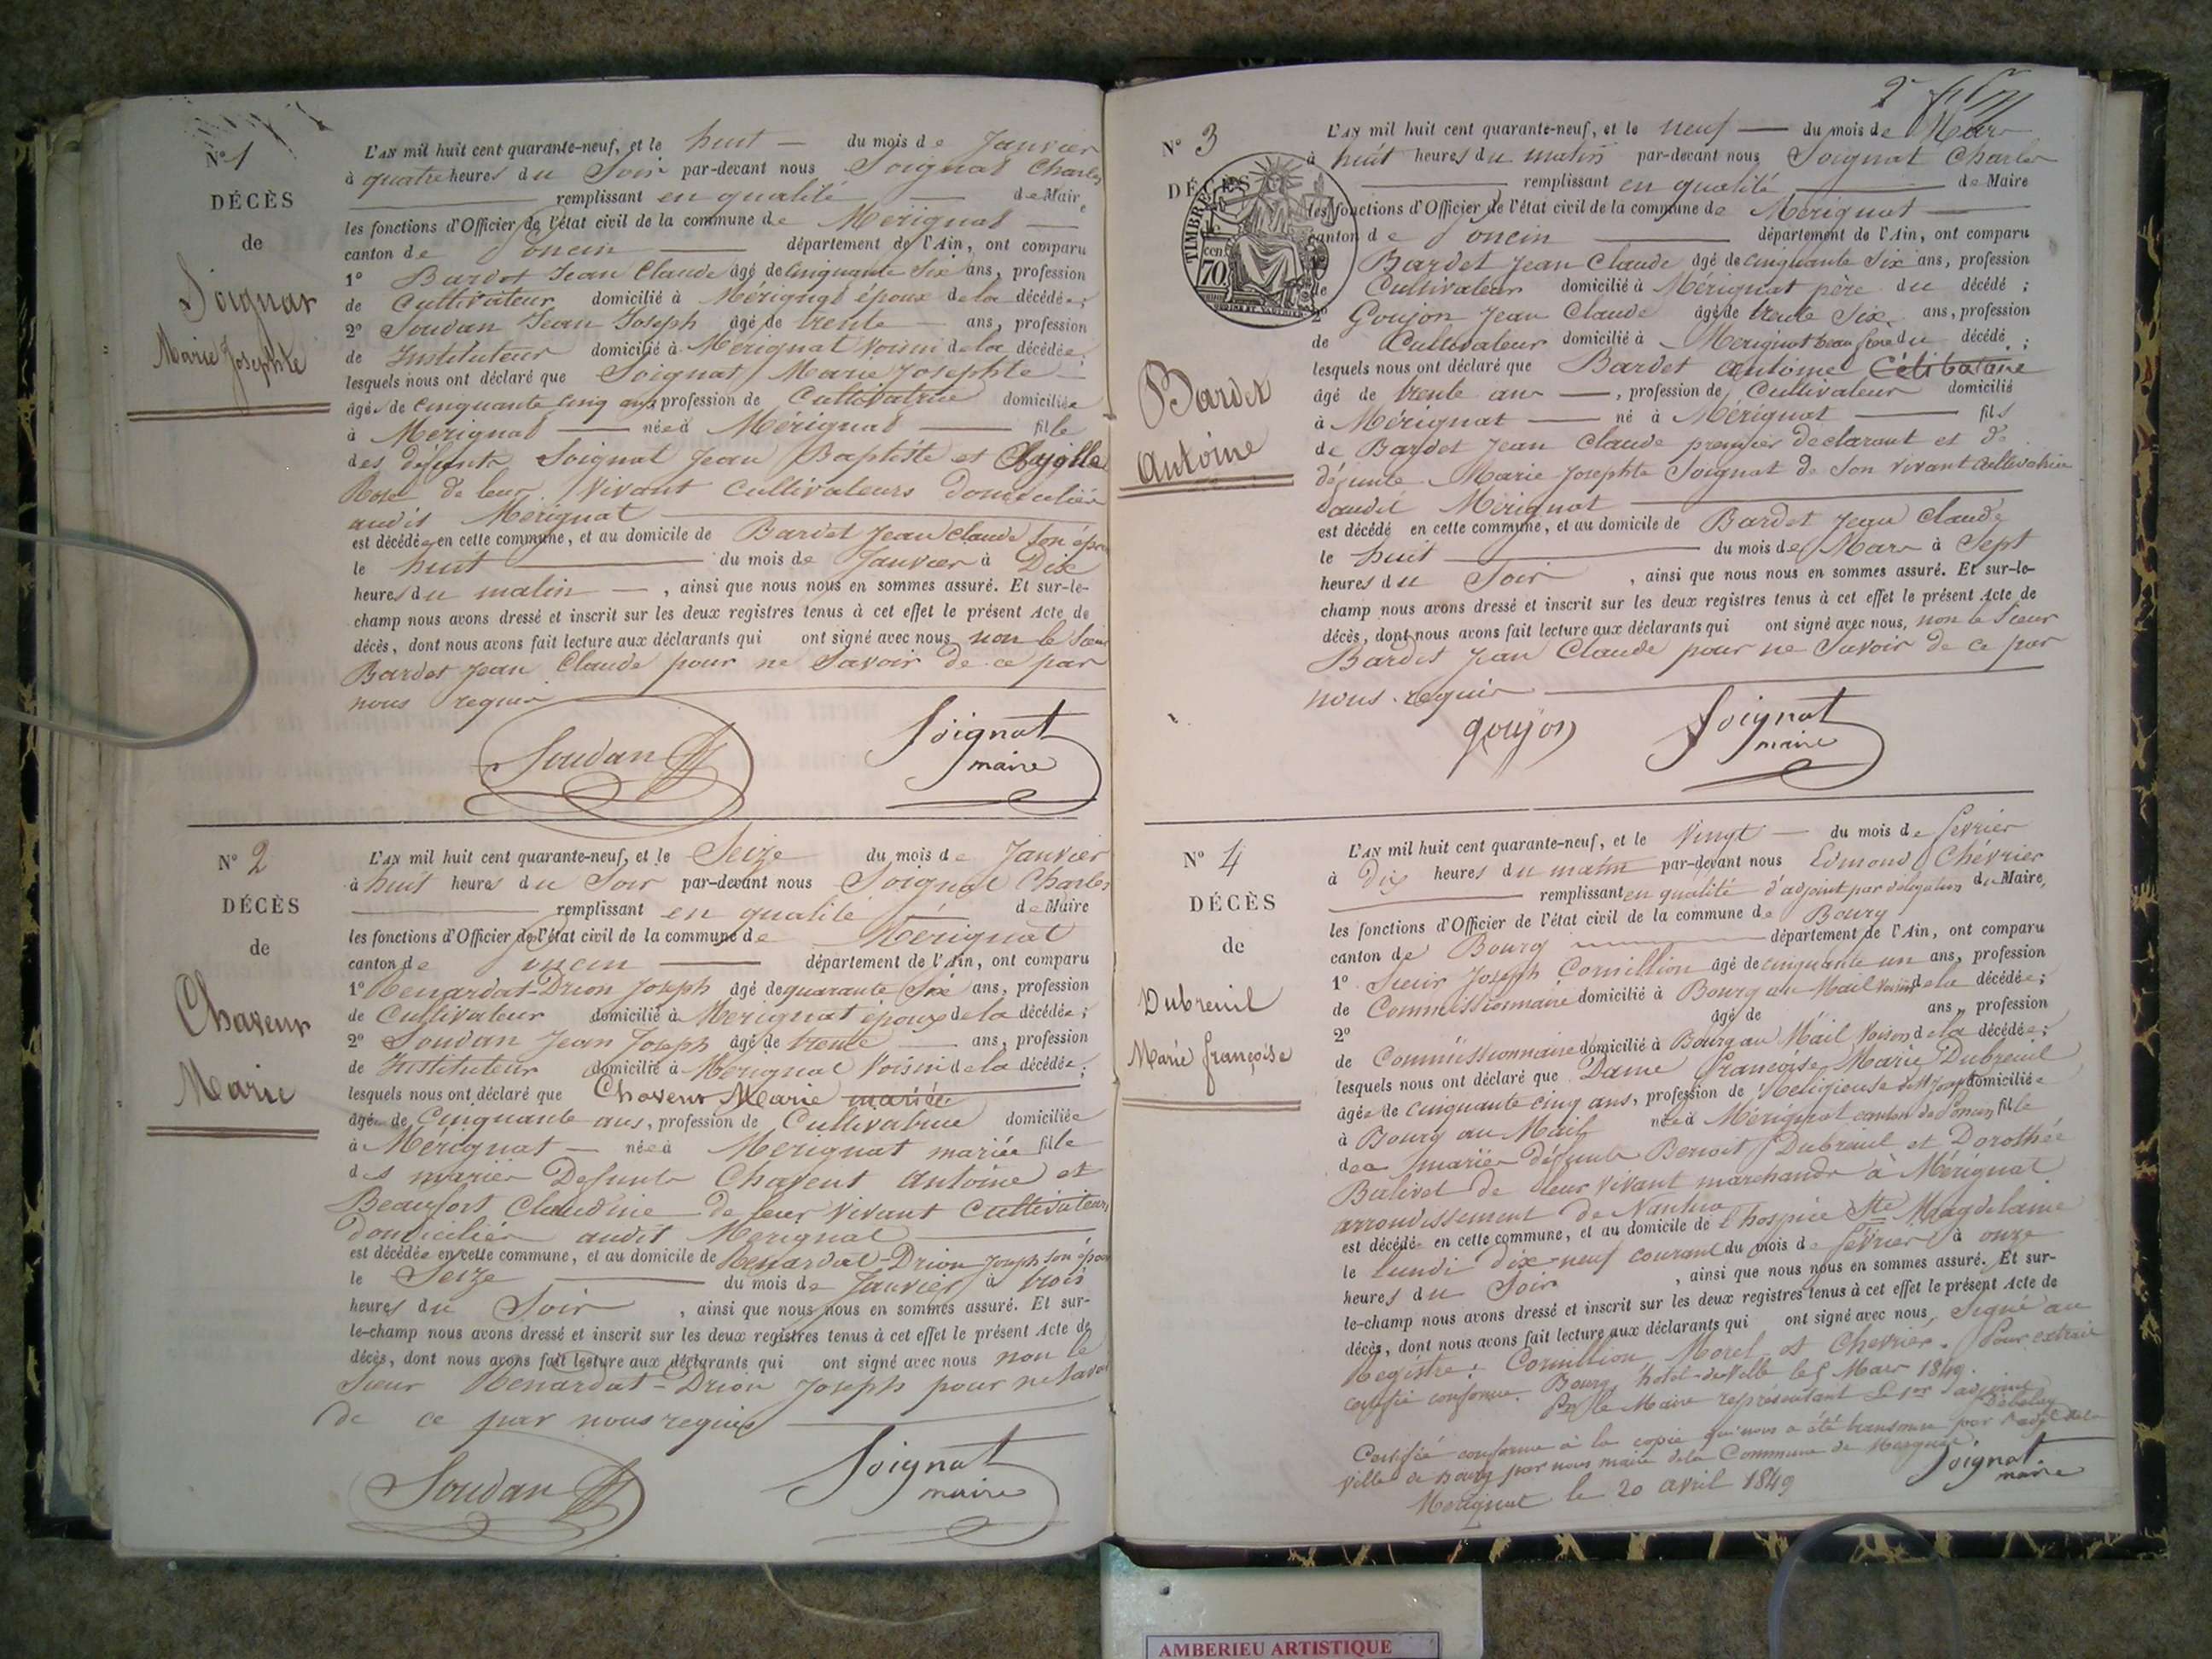 N° 1
DÉCÈS
de
Soignat
Marie Josephte
L'AN mil huit cent quarante-neuf, et le huit — du mois de Janvier
à quatre heures du Soir par-devant nous Soignat Charles
remplissant en qualité de Maire
les fonctions d'Officier de l'état civil de la commune de Merignat
canton de Poncin département de l'Ain, ont comparu
1° Bardet Jean Claude âgé de cinquante Six ans, profession
de Cultivateur domicilié à Mérignat époux de la décédée;
2° Soudan Jean Joseph âgé de trente ans, profession
de Instituteur domicilié à Merignat Voisin de la décédée;
lesquels nous ont déclaré que Soignat Marie Josephte
âgée de cinquante cinq ans, profession de Cultivatrice domiciliée
à Merignat née à Mérignat fille
des défunts Soignat Jean Baptiste et
Rose de leur Vivant cultivateurs domiciliés
audit Merignat
est décédée en cette commune, et au domicile de Bardet Jean Claude son époux
le huit du mois de Janvier à Dix
heures du matin — , ainsi que nous nous en sommes assuré. Et sur-le-
champ nous avons dressé et inscrit sur les deux registres tenus à cet effet le présent Acte de
décès, dont nous avons fait lecture aux déclarants qui ont signé avec nous non le Sieur
Bardet Jean Claude pour ne Savoir de ce par
nous requis
Soudan
Soignat
maire
N° 2
DÉCÈS
de
Chaveur
Marie
L'AN mil huit cent quarante-neuf, et le Seize du mois de Janvier
à huit heures du Soir par-devant nous Soignat Charles
remplissant en qualité de Maire
les fonctions d'Officier de l'état civil de la commune de Mérignat
canton de Poncin département de l'Ain, ont comparu
1° Renardat-Drion Joseph âgé de quarante Six ans, profession
de Cultivateur domicilié à Merignat époux de la décédée;
2° Soudan Jean Joseph âgé de trente ans, profession
de Instituteur domicilié à Merignat Voisin de la décédée;
lesquels nous ont déclaré que Chaveur Marie mariée
âgée de Cinquante ans, profession de Cultivatrice domiciliée
à Mérignat — née à Merignat mariée fille
des mariés Defunts Chavent Antoine et
Beaufort Claudine de leur Vivant Cultivateurs
Domiciliés audit Merignat
est décédée en cette commune, et au domicile de Renardat-Drion Joseph son époux
le Seize du mois de Janvier à trois
heures du Soir , ainsi que nous nous en sommes assuré. Et sur-
le-champ nous avons dressé et inscrit sur les deux registres tenus à cet effet le présent Acte de
décès, dont nous avons fait lecture aux déclarants qui ont signé avec nous non le
Sieur Renardat-Drion Joseph pour ne Savoir
de ce par nous requis
Soudan
Soignat
maire
2e
N° 3
DÉCÈS
TIMBRE
70 cen
Bardet
Antoine
L'AN mil huit cent quarante-neuf, et le neuf — du mois de Mars
à huit heures du matin par-devant nous Soignat Charles
remplissant en qualité de Maire
les fonctions d'Officier de l'état civil de la commune de Mérignat
canton de Poncin département de l'Ain, ont comparu
Bardet Jean Claude âgé de cinquante Six ans, profession
de Cultivateur domicilié à Mérignat père du décédé ;
2° Goujon Jean Claude âgé de trente Six ans, profession
de Cultivateur domicilié à Merignat beau frère du décédé ;
lesquels nous ont déclaré que Bardet Antoine Célibataire
âgé de trente ans — , profession de Cultivateur domicilié
à Mérignat né à Mérignat fils
de Bardet Jean Claude premier declarant et de
défunte Marie Josephte Soignat de Son vivant Cultivatrice
audit Mérignat
est décédé en cette commune, et au domicile de Bardet Jean Claude
le huit du mois de Mars à Sept
heures du Soir , ainsi que nous nous en sommes assuré. Et sur-le-
champ nous avons dressé et inscrit sur les deux registres tenus à cet effet le présent Acte de
décès, dont nous avons fait lecture aux déclarants qui ont signé avec nous, non le Sieur
Bardet Jean Claude pour ne Savoir de ce par
nous requis
goujon
Soignat
maire
N° 4
DÉCÈS
de
Dubreuil
Marie françoise
L'AN mil huit cent quarante-neuf, et le Vingt — du mois de fevrier
à Dix heures du matin par-devant nous Edmond Chévrier
remplissant en qualité d'adjoint par délégation du Maire,
les fonctions d'Officier de l'état civil de la commune de Bourg
canton de Bourg département de l'Ain, ont comparu
1° Sieur Joseph Cornillion âgé de cinquante un ans, profession
de Commissionnaire domicilié à Bourg au Mail voisin de la décédée;
2° âgé de ans, profession
de Commissionnaire domicilié à Bourg au Mail Voisin de la décédée;
lesquels nous ont déclaré que Dame françoise Marie Dubreuil
âgée de cinquante cinq ans, profession de Religieuse de St Joseph domiciliée
à Bourg au Mail née à Mérignat canton de Poncin fille
des mariés défunts Benoit Dubreuil et Dorothée
Balivet de leur vivant marchands à Mérignat
arrondissement de Nantua
est décédée en cette commune, et au domicile de l'hospice Ste Magdelaine
le lundi dix-neuf courant du mois de février à onze
heures du Soir , ainsi que nous nous en sommes assuré. Et sur-
le-champ nous avons dressé et inscrit sur les deux registres tenus à cet effet le présent Acte de
décès, dont nous avons fait lecture aux déclarants qui ont signé avec nous Signé au
Registre: Cornillion, Morel et Chevrier. Pour extrait
certifié conforme. Bourg hôtel-de-Ville le 5 Mars 1849.
Pr le Maire représentant Le 1er adjoint
Certifié conforme à la copie qui nous a été transmise par de la
Ville de Bourg par nous maire de la Commune de Merignat
Merignat le 20 avril 1849
Soignat
maire
AMBERIEU ARTISTIQUE